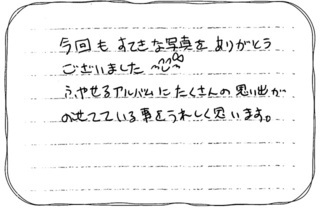 今回も すてきな写真を ありがとう
ございました
ふやせるアルバムに たくさんの 思い出が
のせてている事をうれしく思います。